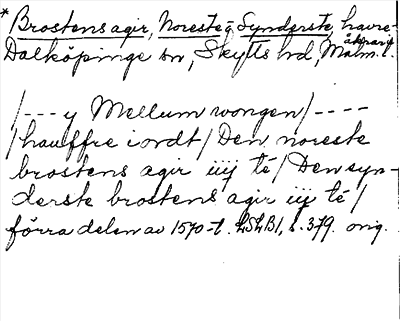 * Brostens agir, Noreste o Synderste, havre-
åkrar i
Dalköpinge sn, Skytts hd, Malm. l.
/--- y Mellum wongen/----
/hauffre iordt/ Den noreste
brostens agir iiij té/ Den syn-
derste brostens agir iij té/
förra delen av 1570-t. LSLB1, s. 379. orig.